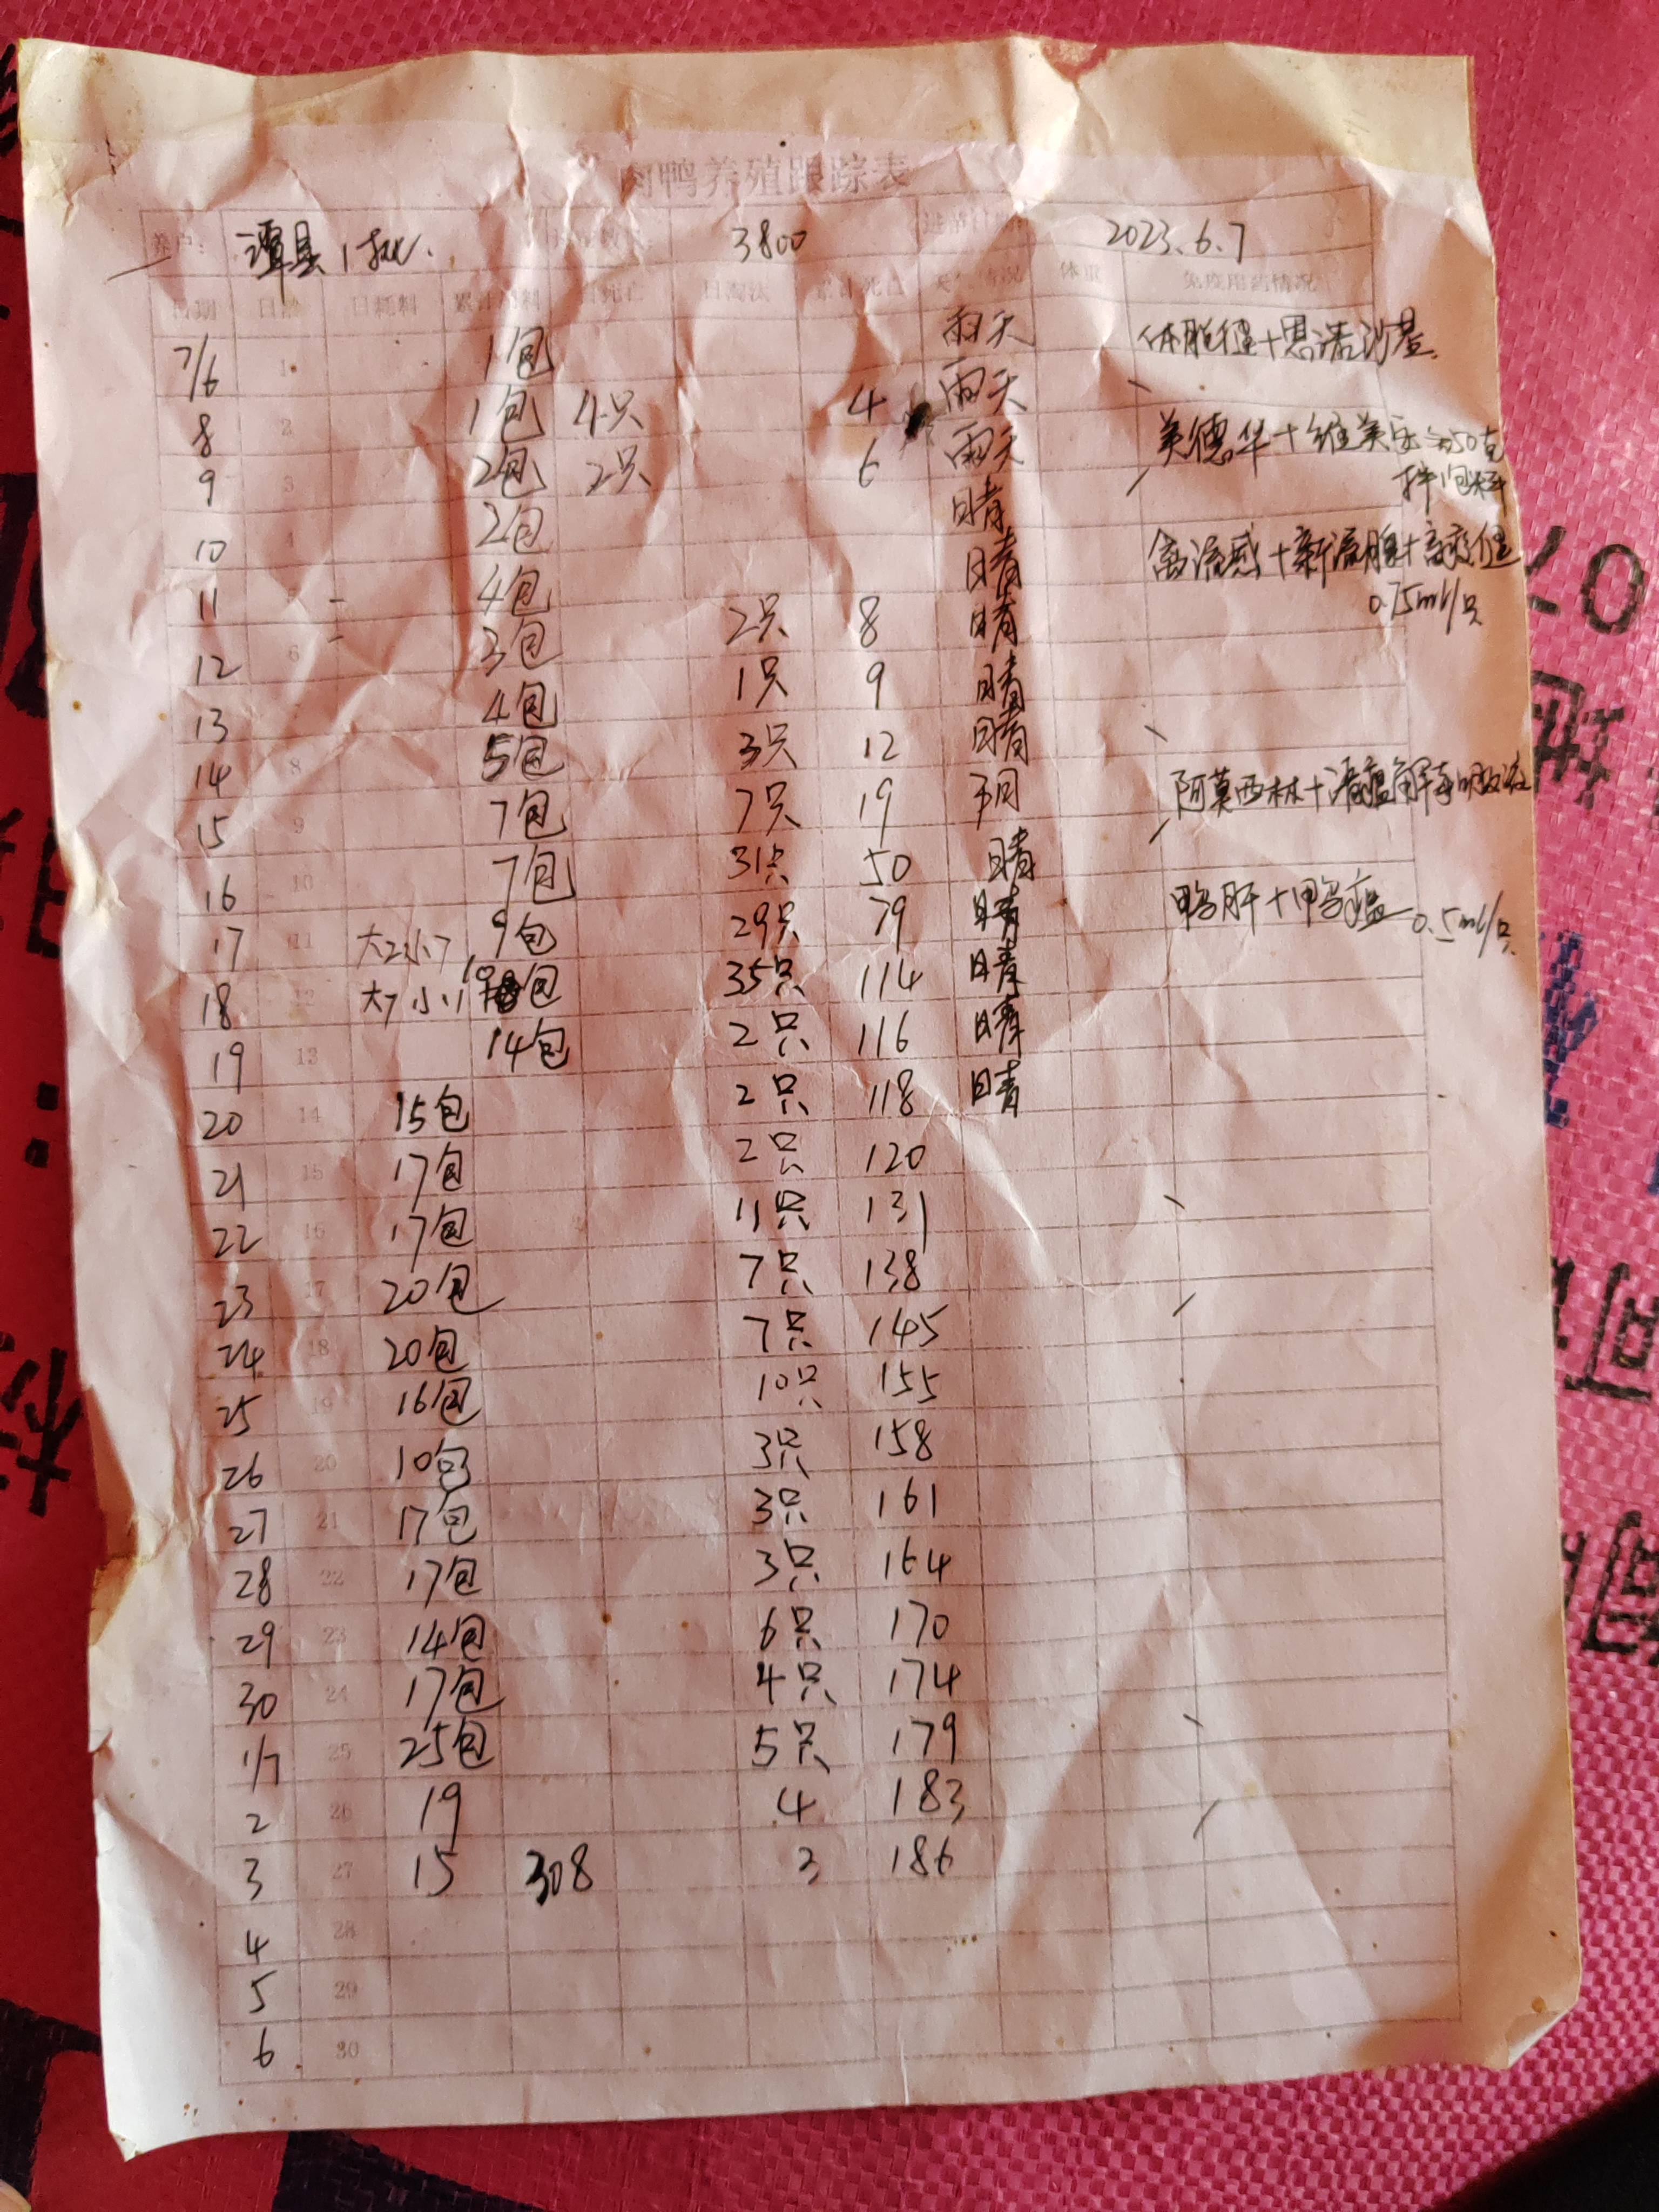 肉鸭养殖跟踪表
养户: 谭县1批. 3800 2023.6.7
日期 日龄 日耗料 累计耗料 日死亡 日淘汰 累计死亡 天气情况 体重 免疫用药情况
7/6 1 1包 雨天
8 2 1包 4只 4 雨天
9 3 2包 2只 6 雨天 美德华+维美安
拌1包料
10 4 2包 晴
11 5 4包 晴 禽流感+新流腺+
0.75ml/只
12 6 3包 2只 8 晴
13 4包 1只 9 晴
14 8 5包 3只 12 晴
15 9 7包 7只 19 阴 阿莫西林+清瘟解毒口服液
16 10 7包 31只 50 晴
17 11 大2小7 9包 29只 79 晴 鸭肝+鸭瘟 0.5ml/只
18 12 大7小11 包 35只 114 晴
19 13 14包 2只 116 晴
20 14 15包 2只 118 晴
21 15 17包 2只 120
22 16 17包 11只 131
23 17 20包 7只 138
24 18 20包 7只 145
25 19 16包 10只 155
26 20 10包 3只 158
27 21 17包 3只 161
28 22 17包 3只 164
29 23 14包 6只 170
30 24 17包 4只 174
1/7 25 25包 5只 179
2 26 19 4 183
3 27 15 308 3 186
4 28
5 29
6 30